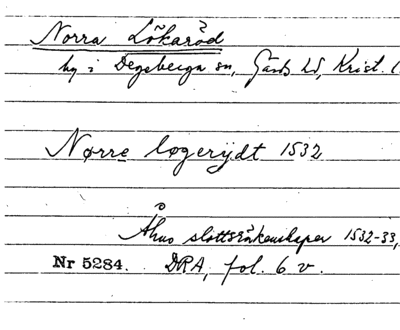 Norra Lökaröd
by i Degeberga sn, Gärds hd, Krist. l.
Nørre løgerijdt 1532
Åhus slottsräkenskaper 1532-33,
Nr 5284. DRA, fol. 6 v.